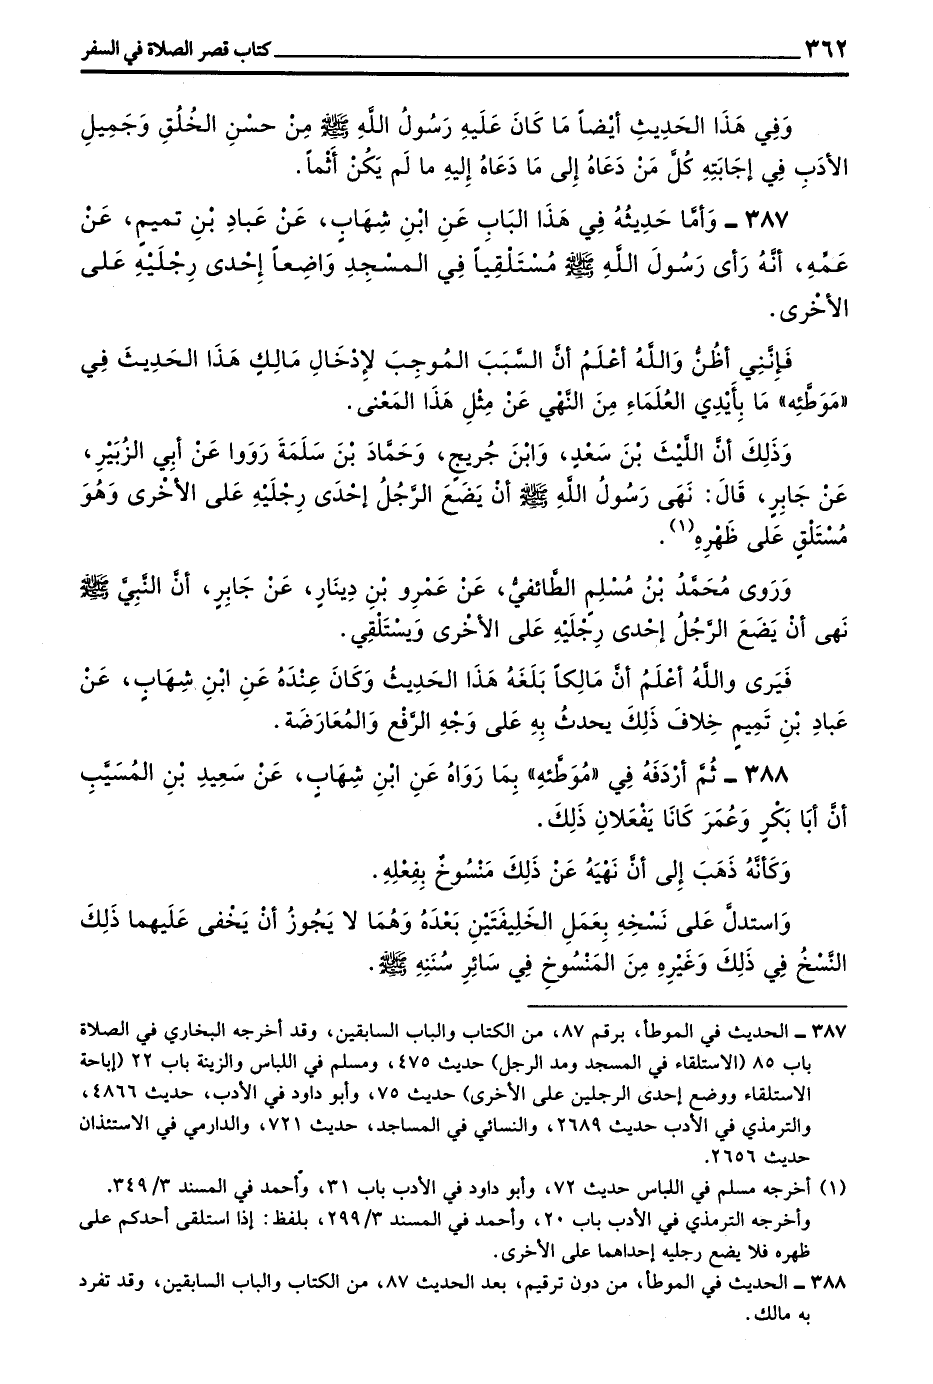 ٣٦٢ كتاب قصر الصلاة في السفر
وَفِي هَذَا الحَدِيثِ أيْضاً مَا كَانَ عَلَيهِ رَسُولُ اللَّهِ ﷺ مِنْ حسْنِ الخُلُقِ وَجَمِيلِ
الأدَبِ فِي إجَابَتِهِ كُلَّ مَنْ دَعَاهُ إلى مَا دَعَاهُ إليهِ ما لَم يَكُنْ أَثْماً.
٣٨٧ ـ وَأمَّا حَدِيثُهُ فِي هَذَا البَابِ عَنِ ابْنِ شِهَابٍ، عَنْ عَبادِ بْنِ تميمٍ، عَنْ
عَمِّهِ، أنَّهُ رَأى رَسُولَ اللَّهِ ﷺ مُسْتَلْقِياً فِي المسْجِدِ وَاضِعاً إحْدى رِجْلَيْهِ عَلى
الأخْرى.
فَإنَّنِي أظُنُّ وَاللَّهُ أعْلَمُ أنَّ السَّبَبَ المُوجِبَ لإدْخَالِ مَالِكٍ هَذَا الحَدِيثَ فِي
«مَوَطَّئِه» مَا بِأَيْدِي العُلَمَاءِ مِنَ النَّهْي عَنْ مِثْلِ هَذَا المَعْنى.
وَذَلِكَ أنَّ اللَّيْثَ بْنَ سَعْدٍ، وَابْنَ جُريجٍ، وَحَمَّادَ بْنَ سَلَمَةَ رَوَوا عَنْ أبي الزُبَيْرِ،
عَنْ جَابِرٍ، قَالَ: نَهَى رَسُولُ اللَّهِ ﷺ أنْ يَضَعَ الرَّجُلُ إحْدَى رِجْلَيْهِ عَلى الأخْرى وَهُوَ
مُسْتَلْقٍ عَلى ظَهْرِهِ(١).
وَرَوى مُحَمَّدُ بْنُ مُسْلِمٍ الطَّائفيُّ، عَنْ عَمْرِو بْنِ دِينَارٍ، عَنْ جَابِرٍ، أنَّ النَّبِيَّ ﷺ
نَهى أنْ يَضَعَ الرَّجُلُ إحْدى رِجْلَيْهِ عَلى الأخْرى وَيسْتَلْقِي.
فَيَرى واللَّهُ أعْلَمُ أنَّ مَالِكاً بَلَغَهُ هَذَا الحَدِيثُ وَكَانَ عِنْدَهُ عَنِ ابْنِ شِهَابٍ، عَنْ
عَبادِ بْنِ تَمِيمٍ خِلافَ ذَلِكَ يحدثُ بِهِ عَلى وَجْهِ الرَّفْعِ وَالمُعَارَضَة.
٣٨٨ ـ ثُمَّ أرْدَفَهُ فِي «مُوَطَّئهِ» بِمَا رَوَاهُ عَنِ ابْنِ شِهَابٍ، عَنْ سَعِيدِ بْنِ المُسَيَّبِ
أنَّ أبَا بَكْرٍ وَعُمَرَ كَانَا يَفْعَلانِ ذَلِكَ.
وَكَأنَّهُ ذَهَبَ إلى أنَّ نَهْيَهُ عَنْ ذَلِكَ مَنْسُوخٌ بِفِعْلِهِ.
وَاستدلَّ عَلى نَسْخِهِ بِعَمَلِ الخَلِيفَتَيْنِ بَعْدَهُ وَهُمَا لا يَجُوزُ أنْ يَخْفى عَلَيهما ذَلِكَ
النَّسْخُ فِي ذَلِكَ وَغَيْرِهِ مِنَ المَنْسُوخِ فِي سَائِرِ سُنَنِهِ ﷺ.
٣٨٧ ـ الحديث في الموطأ، برقم ٨٧، من الكتاب والباب السابقين، وقد أخرجه البخاري في الصلاة
باب ٨٥ (الاستلقاء في المسجد ومد الرجل) حديث ٤٧٥، ومسلم في اللباس والزينة باب ٢٢ (إباحة
الاستلقاء ووضع إحدى الرجلين على الأخرى) حديث ٧٥، وأبو داود في الأدب، حديث ٤٨٦٦،
والترمذي في الأدب حديث ٢٦٨٩، والنسائي في المساجد، حديث ٧٢١، والدارمي في الاستئذان
حديث ٢٦٥٦.
(١) أخرجه مسلم في اللباس حديث ٧٢، وأبو داود في الأدب باب ٣١، وأحمد في المسند ٣/ ٣٤٩.
وأخرجه الترمذي في الأدب باب ٢٠، وأحمد في المسند ٣/ ٢٩٩، بلفظ: إذا استلقى أحدكم على
ظهره فلا يضع رجليه إحداهما على الأخرى.
٣٨٨ ـ الحديث في الموطأ، من دون ترقيم، بعد الحديث ٨٧، من الكتاب والباب السابقين، وقد تفرد
به مالك.